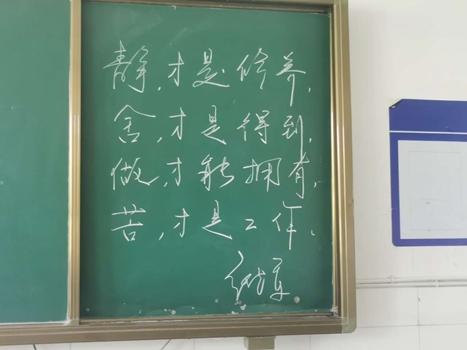 静，才是修养，
舍，才是得到，
做，才能拥有，
苦，才是工作，